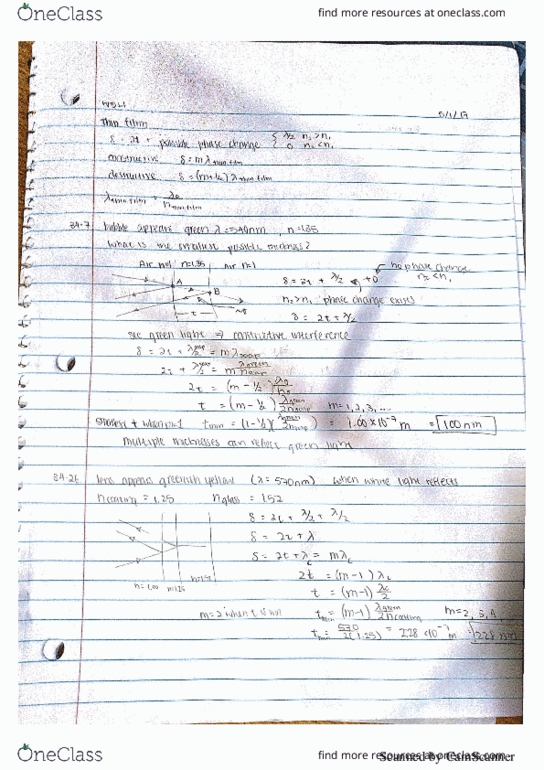 OneClass
find more resources at oneclass.com
5/1/17
Thin film
δ = 2t + possible phase change { λ/2 n₂>n₁
0 n₂<n₁
constructive δ = mλ thin film
destructive δ = (m+½) λ thin film
λ thin film = λ₀ / n thin film
34-7 bubble appears green λ=540nm, n=1.35
What is the smallest possible thickness?
Air n=1 n=1.35 Air n=1
no phase change
n₂<n₁
δ = 2t + λ/2 + 0
A
B
n₂>n₁ phase change exists
t
δ = 2t + λ/2
see green light ⇒ constructive interference
δ = 2t + λsoap/2 = mλsoap
2t + λsoap/2 = m λgreen/nsoap
2t = (m - 1/2)
t = (m - ½) λgreen/2nsoap m = 1, 2, 3, ...
smallest t when m=1 tmin = (1-½)(λgreen/2nsoap) = 1.00 x 10⁻⁷ m = 100 nm
multiple thicknesses can reflect green light
34-26 lens appears greenish yellow (λ = 570nm) when white light reflects
n coating = 1.25 n glass = 1.52
δ = 2t + λ/2 + λ/2
δ = 2t + λ
δ = 2t + λc = mλc
2t = (m-1) λc
t = (m-1) λc/2
n=1.00 n=1.25 n=1.52
m=2 when t is min
tmin = (m-1) / 2n coating m=2, 3, 4
tmin = 570/2(1.25) = 2.28 x10⁻⁷ m = 228 nm
OneClass
find more resources at oneclass.com
Scanned by CamScanner